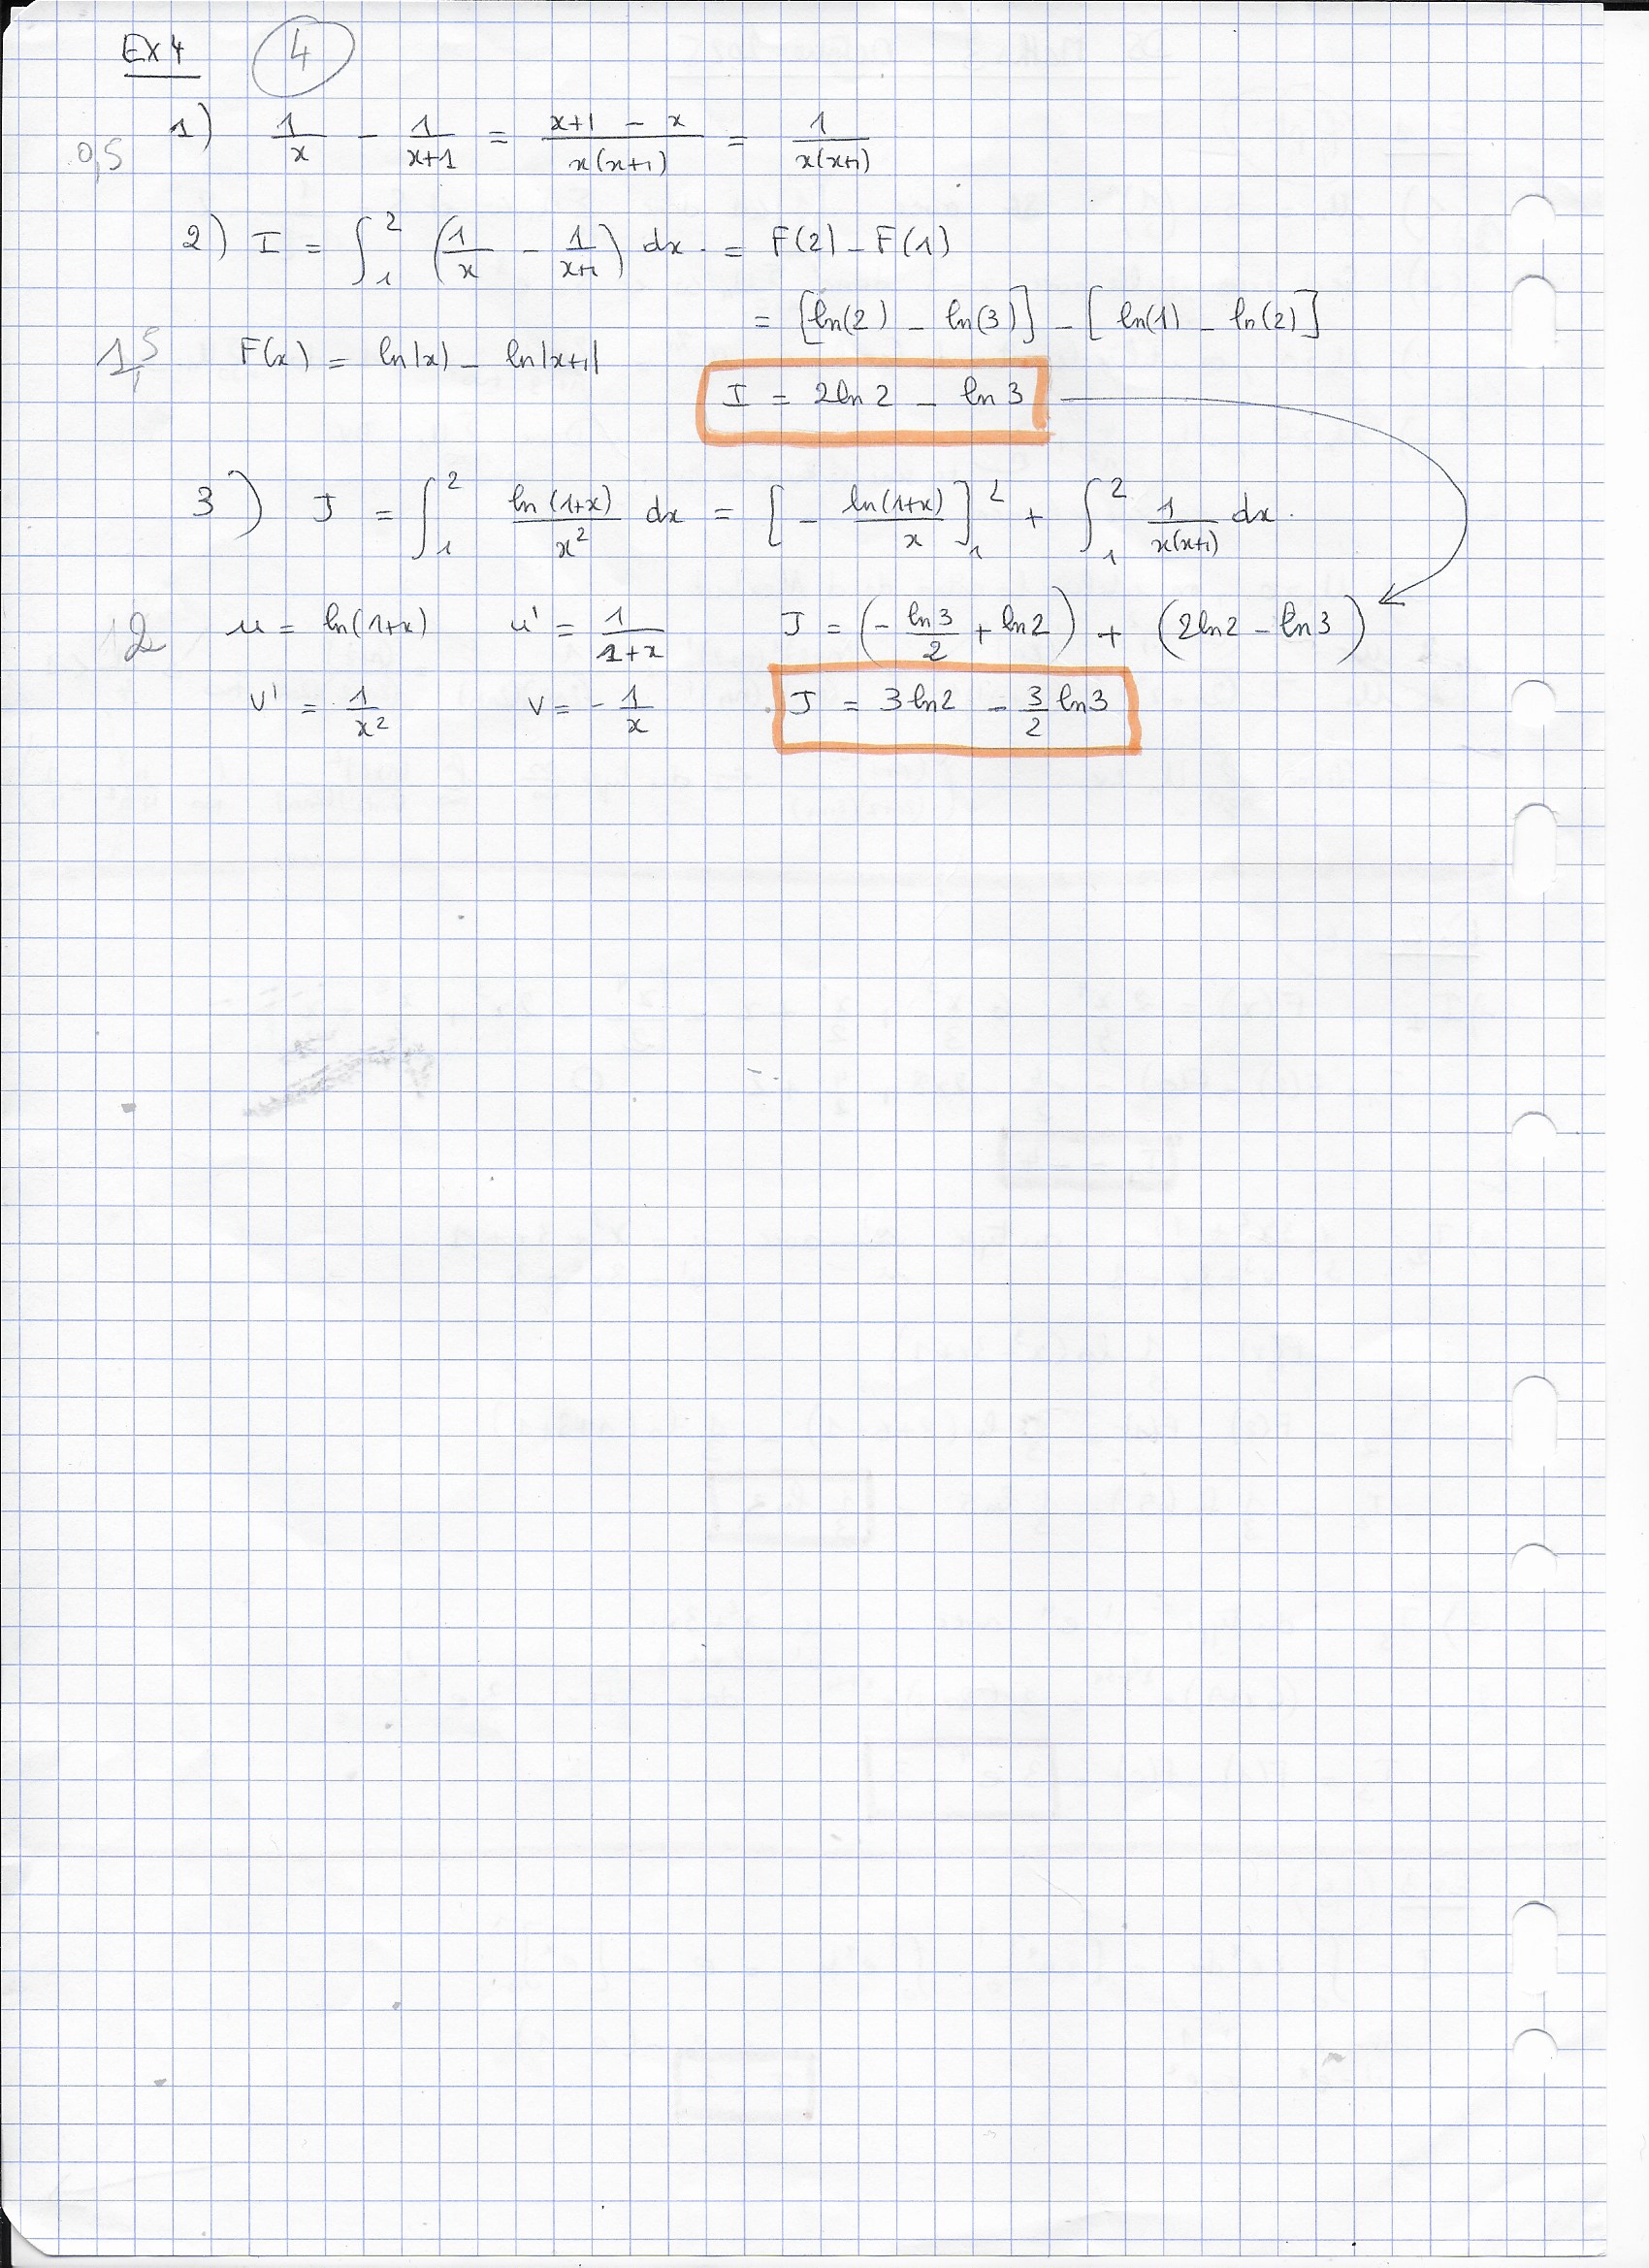 EX 4 4
0,5 1) 1/x - 1/(x+1) = (x+1 - x)/(x(x+1)) = 1/(x(x+1))
2) I = ∫₁² (1/x - 1/(x+1)) dx = F(2) - F(1)
= [ln(2) - ln(3)] - [ln(1) - ln(2)]
1,5 F(x) = ln|x| - ln|x+1|
I = 2ln2 - ln3
3) J = ∫₁² ln(1+x)/x² dx = [- ln(1+x)/x]₁² + ∫₁² 1/(x(x+1)) dx.
2 u = ln(1+x) u' = 1/(1+x) J = (- ln3/2 + ln2) + (2ln2 - ln3)
v' = 1/x² v = - 1/x J = 3ln2 - 3/2 ln3